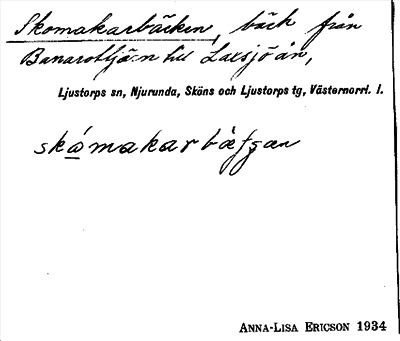 Skomakarbäcken, bäck från
Banarotjärn till Laxsjöån,
Ljustorps sn, Njurunda, Sköns och Ljustorps tg, Västernorrl. l.
skámakarbä̀fgan
ANNA-LISA ERICSON 1934